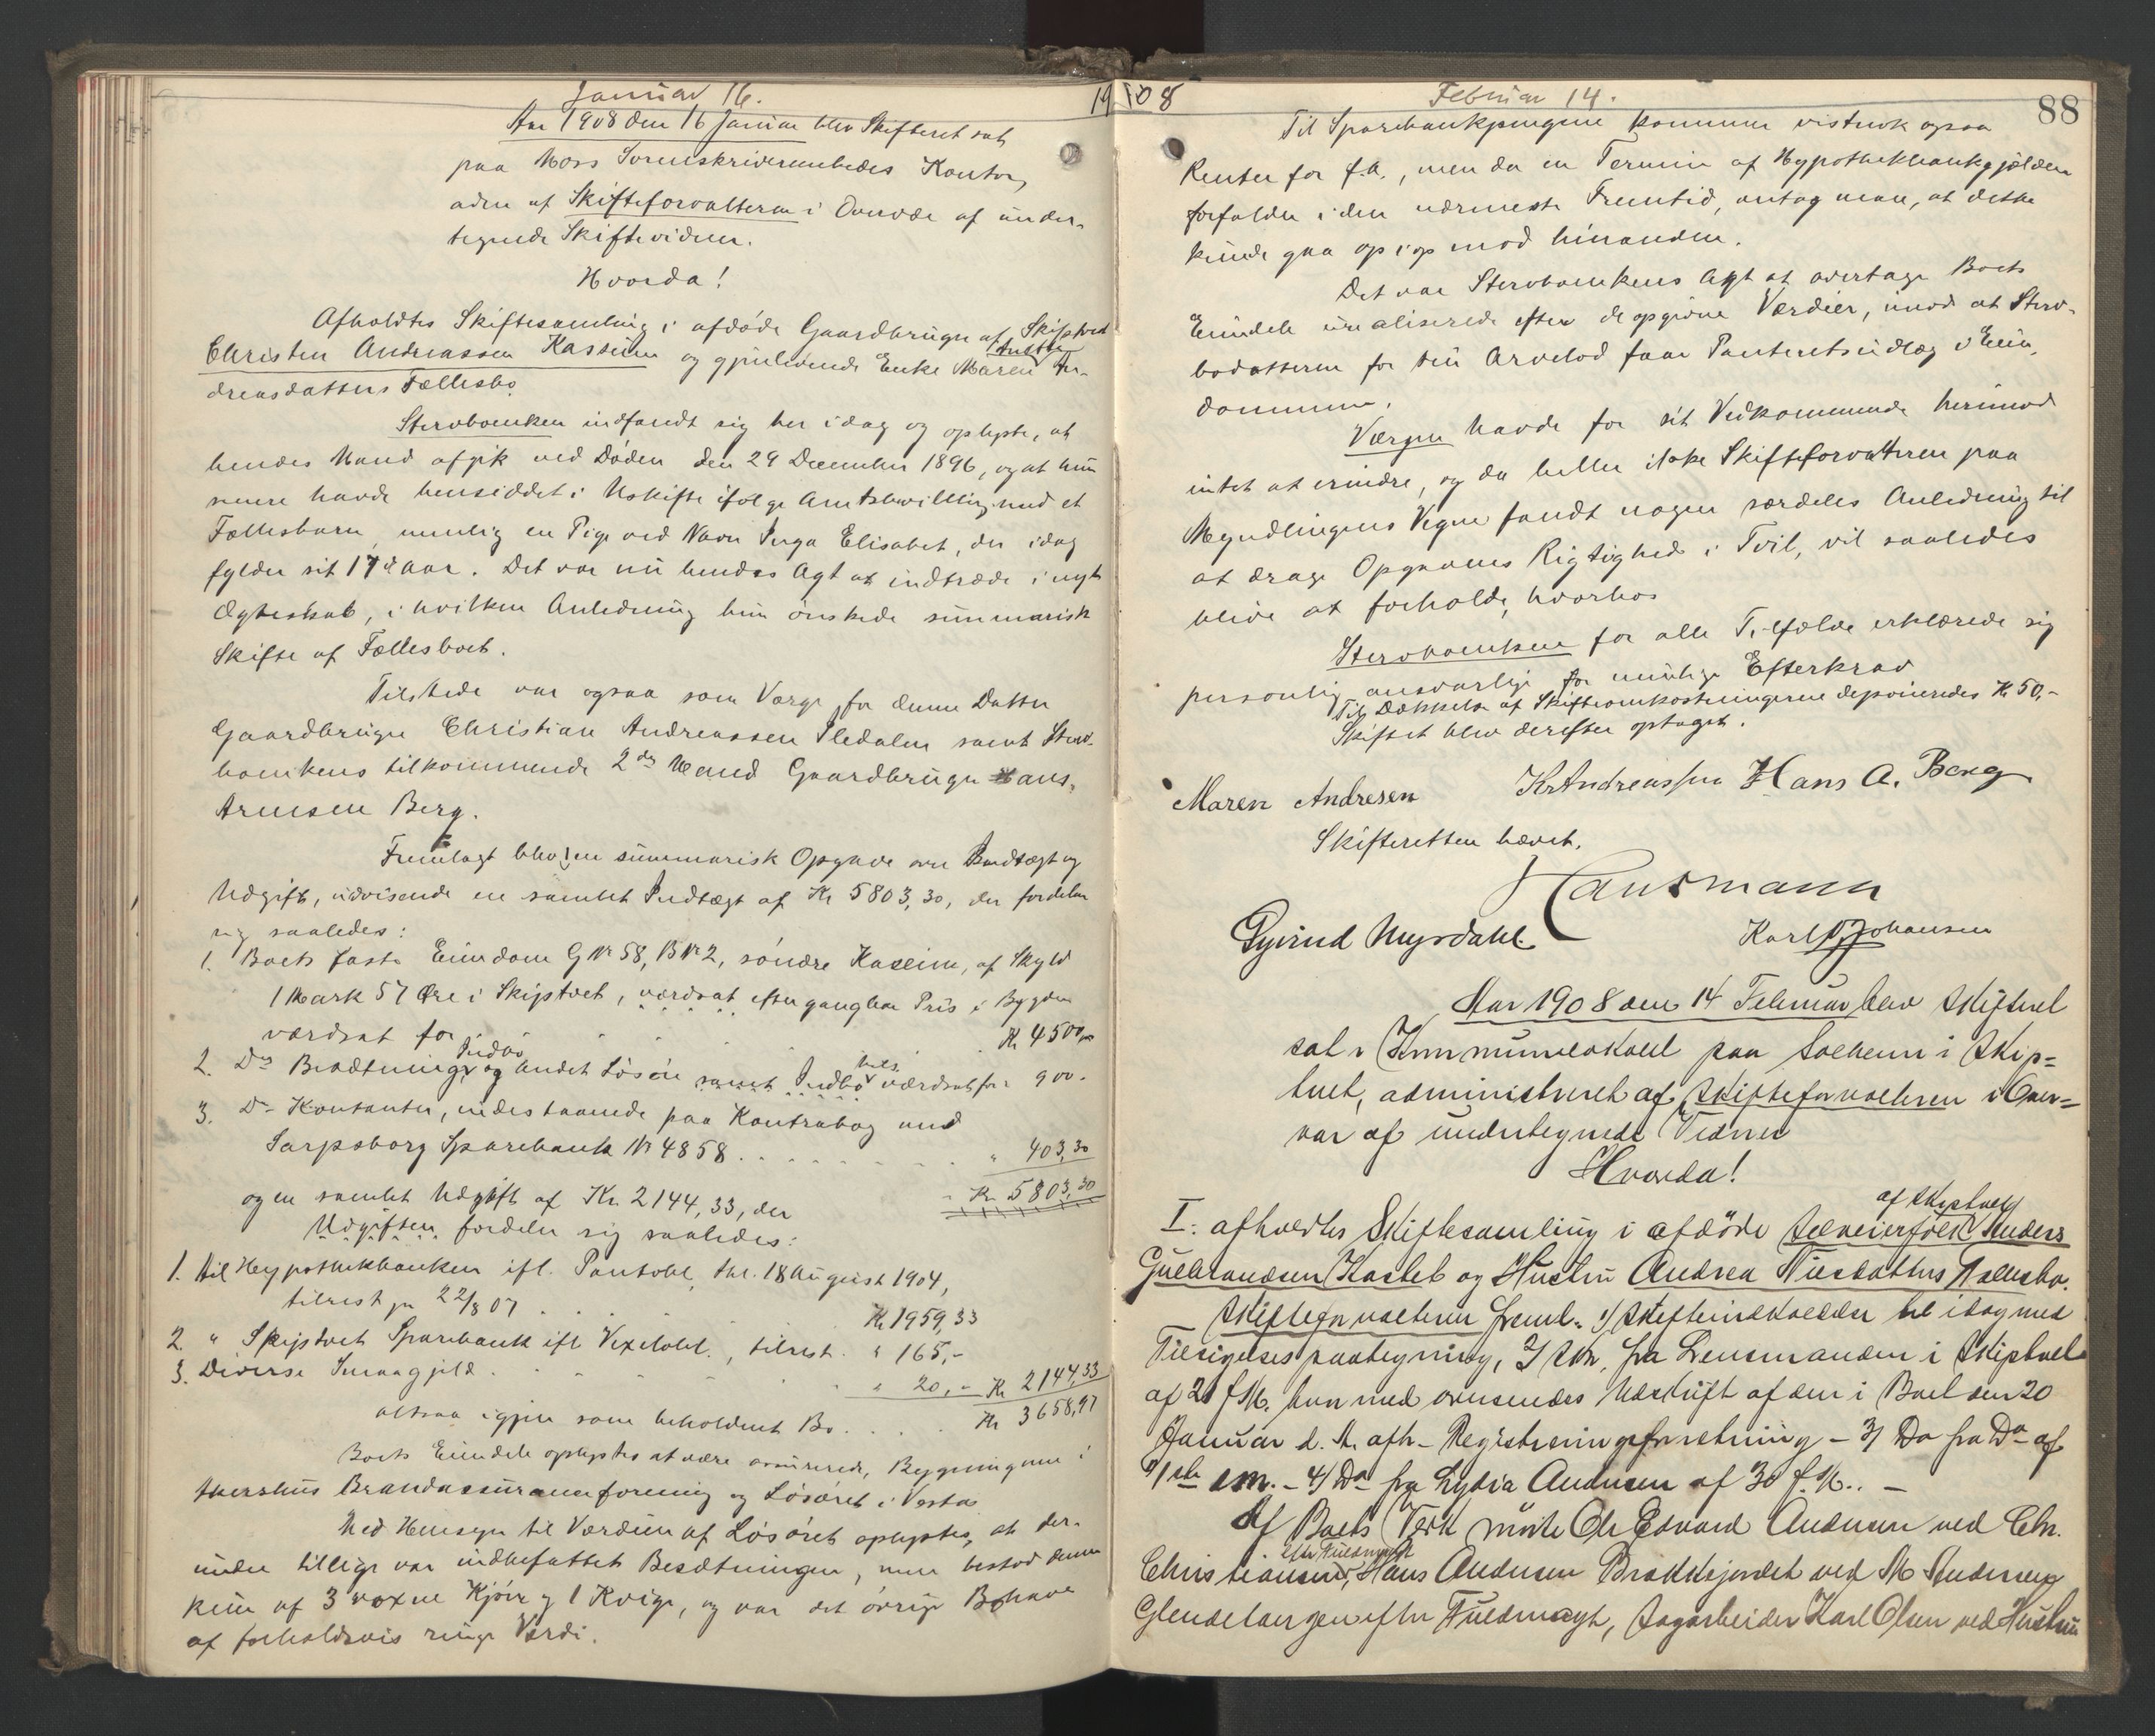 Januar 16.
19
Aar 1908 den 16 Januar blev Skifteret sat
paa Moss Sorenskriverembedes Kontor,
adm af Skifteforvalteren i Overvær af under-
tegnede Skiftevidner.
Hvorda!
Afholdtes Skiftesamling i afdøde Gaardbruger af Skiptvet
Christen Andreassen Kasseim og gjenlevende Enke Maren An-
dreasdatters Fællesbo.
Stervboenken indfandt sig her idag og oplyste, at
hendes Mand afgik ved Døden den 29 December 1896, og at hun
senere havde hensiddet i Uskifte ifølge Amtsbevilling med et
Fællesbarn, nemlig en Pige ved Navn Inga Elisabet, der idag
fylder sit 17de Aar. Det var nu hendes Agt at indtræde i nyt
Ægteskab, i hvilken Anledning hun ønskede summarisk
Skifte af Fællesboet.
Tilstede var ogsaa som Værge for denne Datter
Gaardbruger Christian Andreassen Sledalen samt Sterv-
boenkens tilkommende 2den Mand Gaardbruger Hans
Arnesen Berg.
Fremlagt blev en summarisk Opgave over Indtægt og
Udgift, udvisende en samlet Indtægt af Kr 5803,30, der fordeler
sig saaledes:
1. Boets faste Eiendom G Nr 58, B Nr 2, søndre Kasseim, af Skyld
1 Mark 57 Øre i Skiptvet, værdsat efter gangbar Pris i Bygden
værdsat for . . . Kr 4500,-
2. Ds Besætning, Indbo og andet Løsøre samt Indbo værdsat for " 900.-
3. Ds Kontanter, indestaaende paa Kontrabog med
Sarpsborg Sparebank Nr 4858 . . . " 403,30
Kr 5803,30
og en samlet Udgift af Kr. 2144,33, der
Udgiften fordeler sig saaledes:
1. til Hypothekbanken ifl. Pantobl. thl. 18 August 1904,
tilrest pr 22/8 07 . . . Kr 1959,33
2. " Skiptvet Sparebank ifl Vexelobl., tilrest . " 165,-
3. Diverse Smaagjeld . . . " 20,- Kr 2144,33
altsaa igjen som beholdent Bo . . . Kr 3658,97
Boets Eiendele oplystes at være assurerede, Bygningerne i
Akershus Brandassuranceforening og Løsøret i Vesta
Med Hensyn til Værdien af Løsøret oplystes, at der-
under tillige var indbefattet Besætningen, men bestod denne
kun af 3 voxne Kjør og 1 Kvige, og var det øvrige Bohave
af forholdsvis ringe Værdi.
08
Februar 14.
88
Til Sparebankpengene kommer vistnok ogsaa
Renter for f.A., men da en Termin af Hypothekbankgjælden
forfalder i den nærmeste Fremtid, antog man, at dette
kunde gaa op i op mod hinanden.
Det var Stervboenkens Agt at overtage Boets
Eiendele urealiserede efter de opgivne Værdier, imod at Sterv-
bodatteren for sin Arvelod faar Panteretsudlæg i Eien-
dommen.
Værgen havde for sit Vedkommende herimod
intet at erindre, og da heller ikke Skifteforvalteren paa
Myndlingens Vegne fandt nogen særdeles Anledning til
at drage Opgavens Rigtighed i Tvil, vil saaledes
blive at forholde, hvorhos
Stervboenken for alle Tilfælde erklærede sig
personlig ansvarlig for mulige Efterkrav
Til Dækkelse af Skifteomkostningerne deponeredes Kr 50,-
Skiftet blev derefter optaget.
Maren Andresen Kr Andreassen Hans A. Berg
Skifteretten hævet.
Hausmann
Eyvind Myrdahl Karl Johansen
Aar 1908 den 14 Februar blev Skifteret
sat i Kommunelokalet paa Solheim i Skip=
tvet, administreret af Skifteforvalteren i Over=
vær af undertegnede Vidner
Hvorda!
af Skiptvet
I: afholdtes Skiftesamling i afdøde Selveierfolk Anders
Gulbrandsen Kastet og Hustru Andrea Nilsdatters Fællesbo.
Skifteforvalteren freml. 1/ Skifteindkaldelse til idag med
Tilsigelsespaategning, 2/ Skr. fra Lensmanden i Skiptvet
af 21 f.M. hvormed oversendes Udskrift af den i Boet den 20
Januar d. A. afh. Registreringsforretning - 3/ Do fra Do af
- 4/ Do fra Lydia Andersen af 30 f.M.. -
Af Boets Verk mødte Ole Edvard Andersen ved Chr.
efter Fuldmagt
Christiansen, Hans Andersen Brakkejordet ved M Andersen
efter Fuldmagt, Sagarbeider Karl Olsen ved Hustru